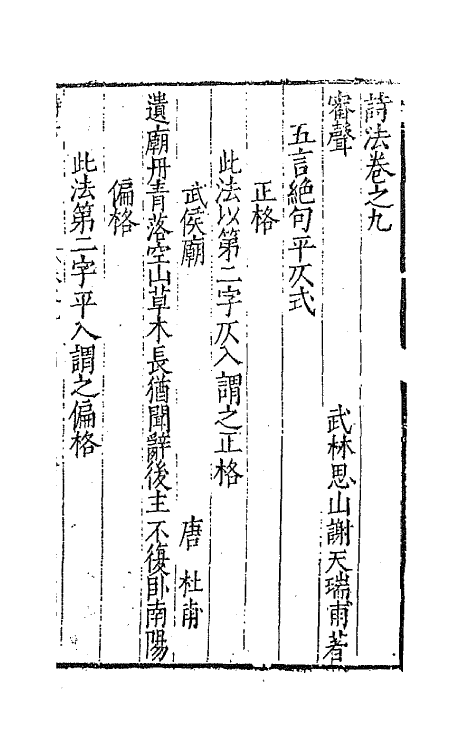 詩法卷之九
審聲　武林思山謝天瑞甫著
五言絕句平仄式
正格
此法以第二字仄入謂之正格
武侯廟　唐　杜甫
遺廟丹青落空山草木長猶聞辭後主不復卧南陽
偏格
此法第二字平入謂之偏格